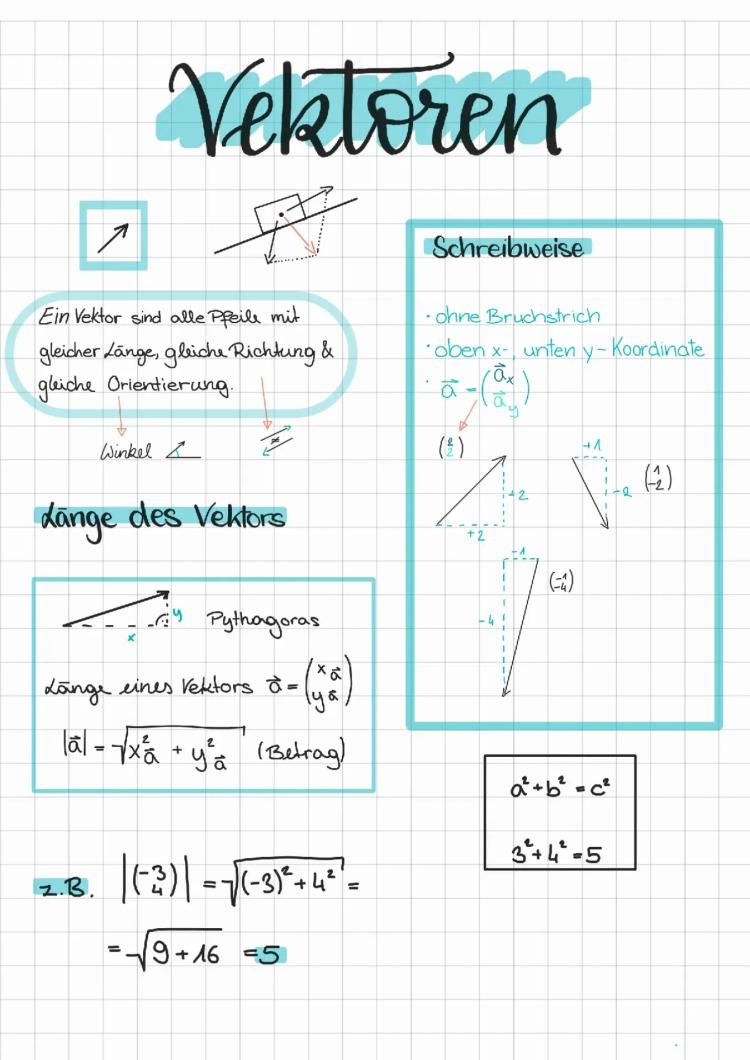 Vektoren
Ein Vektor sind alle Pfeile mit
gleicher Länge, gleiche Richtung &
gleiche Orientierung.
Winkel
≠
Länge des Vektors
y
x
Pythagoras
Länge eines Vektors a⃗ = (x a⃗ / y a⃗)
|a⃗| = √(x²a⃗ + y²a⃗) (Betrag)
z.B. |(-3 / 4)| = √((-3)² + 4²) =
= √(9 + 16) = 5
Schreibweise
· ohne Bruchstrich
· oben x-, unten y-Koordinate
· a⃗ = (a⃗x / a⃗y)
(2 / 2)
+2
+2
+1
-2
(1 / -2)
-1
-4
(-1 / -4)
a² + b² = c²
3² + 4² = 5